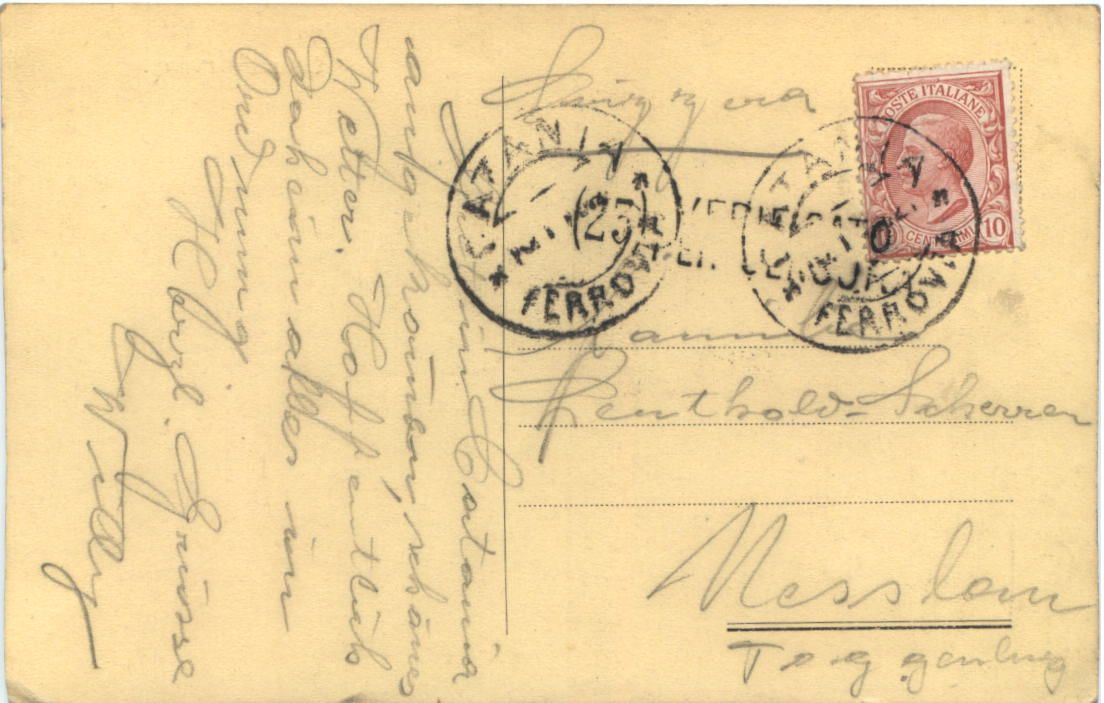 Bin in Catania
angekommen, schönes
Wetter. Hoffentlich
Daheim alles in
Ordnung
Hrzl. Grüsse
Willy
Svizzera
Familie
Leuthold-Scherrer
Nesslau
Toggenburg
POSTE ITALIANE
CENTESIMI 10
CATANIA
FERROVIA
(25
CATANIA
FERROVIA
VERIFICATO
PER CENSURA